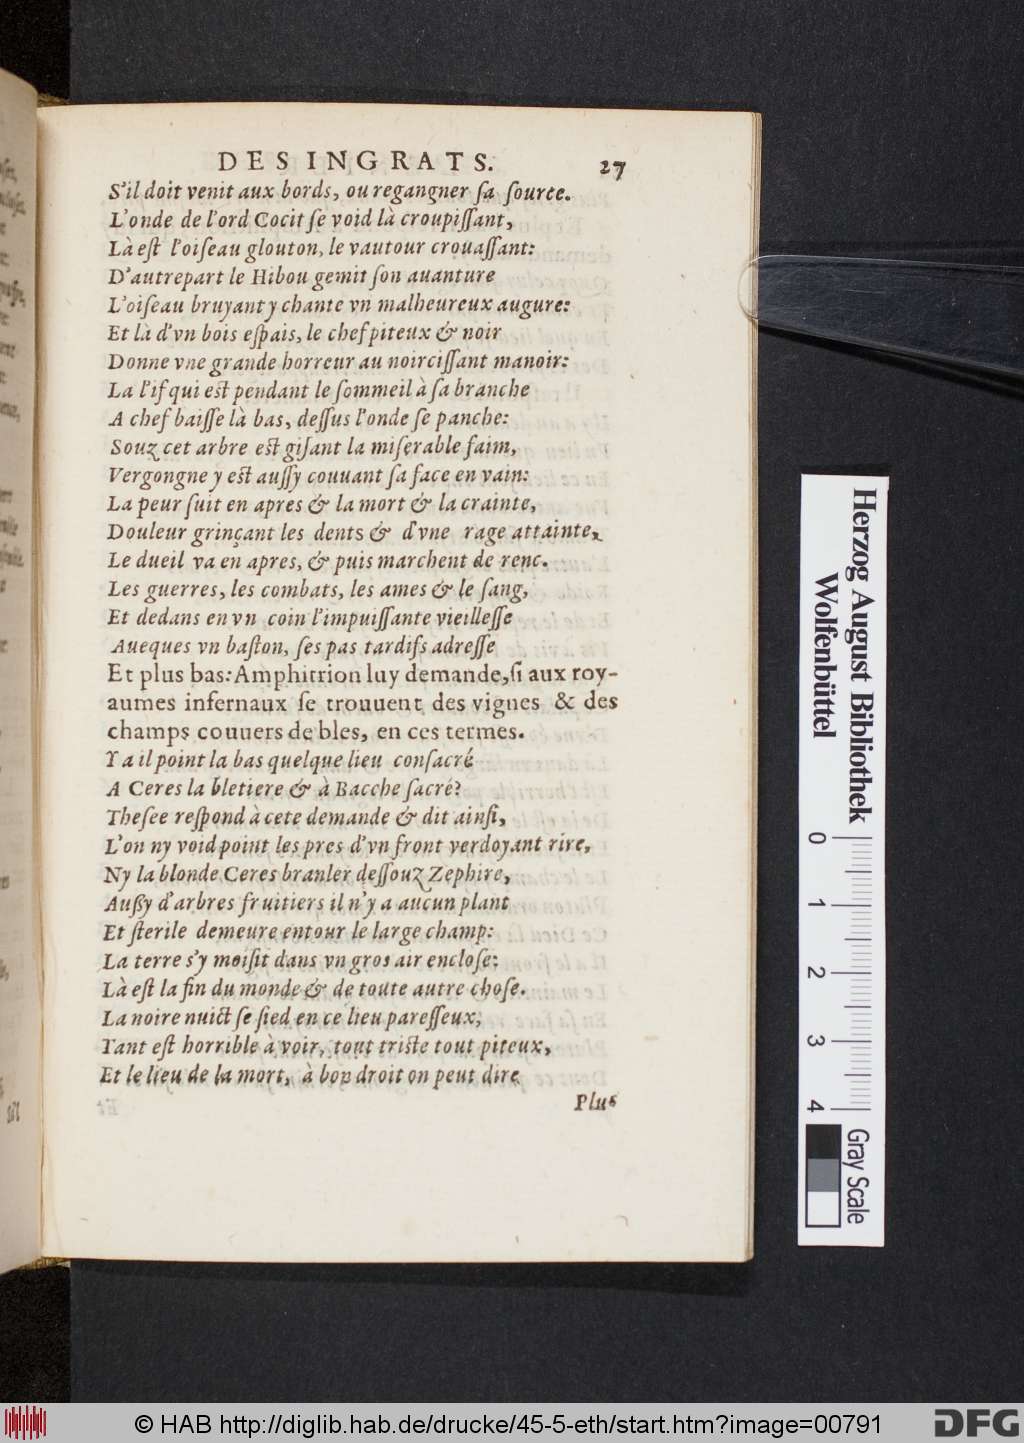 DES INGRATS. 27
S'il doit venit aux bords, ou regangner ſa ſource.
L'onde de l'ord Cocit ſe void là croupiſſant,
Là eſt l'oiſeau glouton, le vautour crouaſſant:
D'autrepart le Hibou gemit ſon auanture
L'oiſeau bruyant y chante vn malheureux augure:
Et là d'vn bois eſpais, le chef piteux & noir
Donne vne grande horreur au noirciſſant manoir:
La l'if qui eſt pendant le ſommeil à ſa branche
A chef baiſſe là bas, deſſus l'onde ſe panche:
Souz cet arbre eſt giſant la miſerable faim,
Vergongne y eſt auſſy couuant ſa face en vain:
La peur ſuit en apres & la mort & la crainte,
Douleur grinçant les dents & d'vne rage attainte,
Le dueil va en apres, & puis marchent de renc.
Les guerres, les combats, les ames & le ſang,
Et dedans en vn coin l'impuiſſante vieilleſſe
Aueques vn baſton, ſes pas tardifs adreſſe
Et plus bas: Amphitrion luy demande, ſi aux roy-
aumes infernaux ſe trouuent des vignes & des
champs couuers de bles, en ces termes.
Y a il point la bas quelque lieu conſacré
A Ceres la bletiere & à Bacche ſacré?
Theſee reſpond à cete demande & dit ainſi,
L'on ny void point les pres d'vn front verdoyant rire,
Ny la blonde Ceres branler deſſouz Zephire,
Außy d'arbres fruitiers il n'y a aucun plant
Et ſterile demeure entour le large champ:
La terre s'y moiſit dans vn gros air encloſe:
Là eſt la fin du monde & de toute autre choſe.
La noire nuict ſe ſied en ce lieu pareſſeux,
Tant eſt horrible à voir, tout triſte tout piteux,
Et le lieu de la mort, à bon droit on peut dire
Plus
Herzog August Bibliothek
Wolfenbüttel
0 1 2 3 4
Gray Scale
© HAB http://diglib.hab.de/drucke/45-5-eth/start.htm?image=00791
DFG